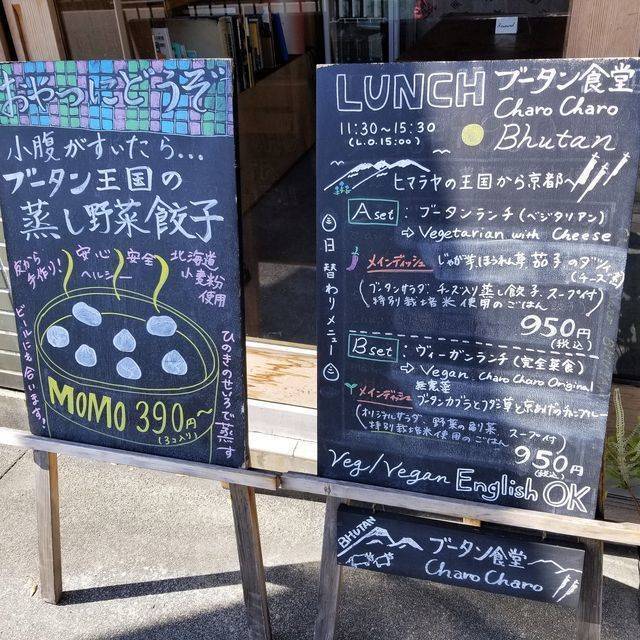 おやつにどうぞ
小腹がすいたら...
ブータン王国の
蒸し野菜餃子
皮から
手作り!
安心
ヘルシー
安全
北海道
小麦粉
使用
ビールにも合います!
ひのきのせいろで蒸す
MOMO 390円~
(3コ入り)
LUNCH
11:30~15:30
(L.O.15:00)
ブータン食堂
Charo Charo
Bhutan
ヒマラヤの王国から京都へ
日替わりメニュー
A set : ブータンランチ(ベジタリアン)
⇨ Vegetarian with Cheese
メインディッシュ じゃが芋、ほうれん草、茄子のダツィ
(チーズ煮)
(ブータンサラダ、チーズ入り蒸し餃子、スープ付)
特別栽培米使用のごはん
950円
(税込)
B set : ヴィーガンランチ(完全菜食)
⇨ Vegan Charo Charo Original
無農薬
メインディッシュ
(オリジナルサラダ、野菜の副菜 スープ付)
特別栽培米使用のごはん
950円
(税込)
Veg/Vegan English OK
BHUTAN
ブータン食堂
Charo Charo